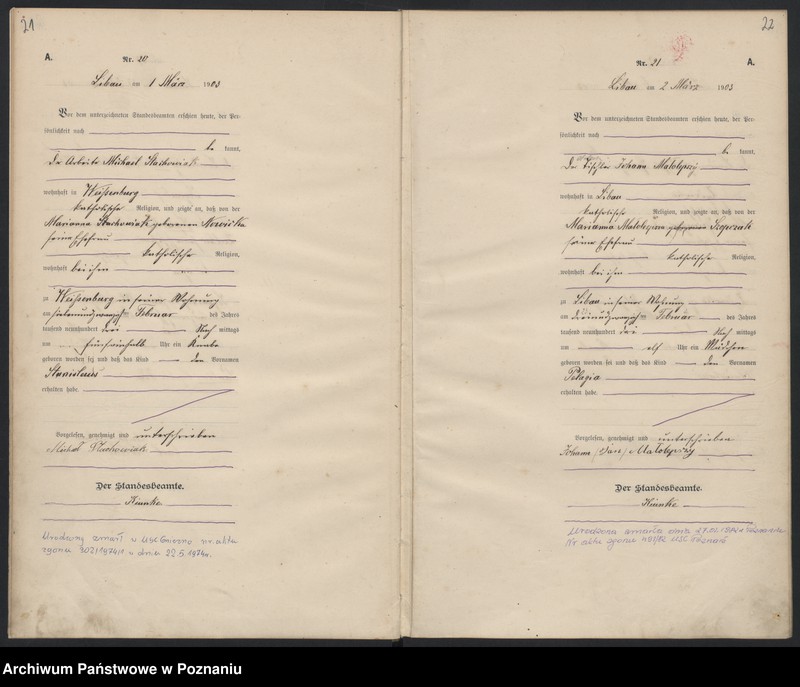 21
A.
Nr. 20
Libau am 1 März 1903
Vor dem unterzeichneten Standesbeamten erschien heute, der Per-
sönlichkeit nach
be kannt,
Der Arbeiter Michael Stachowiak
wohnhaft in Weißenburg
katholischer Religion, und zeigte an, daß von der
Marianna Stachowiak geborenen
seiner Ehefrau
katholischer Religion,
wohnhaft bei ihm
zu Weißenburg in seiner Wohnung
am siebenundzwanzigsten Februar des Jahres
tausend neunhundert drei Nach mittags
um fünfeinhalb Uhr ein Knabe
geboren worden sei und daß das Kind den Vornamen
Stanislaus
erhalten habe.
Vorgelesen, genehmigt und unterschrieben
Michał Stachowiak
Der Standesbeamte.
Urodzony zmarł w USC Gniezno nr. aktu
zgonu 302/1974/1 w dniu 29.5.1974r.
22
Nr. 21
A.
Libau am 2 März 1903
Vor dem unterzeichneten Standesbeamten erschien heute, der Per-
sönlichkeit nach
be kannt,
Der Tischler Johann Małolepszy
wohnhaft in Libau
katholischer Religion, und zeigte an, daß von der
Marianna Małolepszy geborenen
seiner Ehefrau
katholischer Religion,
wohnhaft bei ihm
zu Libau in seiner Wohnung
am dreiundzwanzigsten Februar des Jahres
tausend neunhundert drei Nach mittags
um elf Uhr ein Mädchen
geboren worden sei und daß das Kind den Vornamen
Pelagia
erhalten habe.
Vorgelesen, genehmigt und unterschrieben
Johann (Jan) Małolepszy
Der Standesbeamte.
Urodzona zmarła dnia 27.02
Nr aktu zgonu USC Poznań
Archiwum Państwowe w Poznaniu